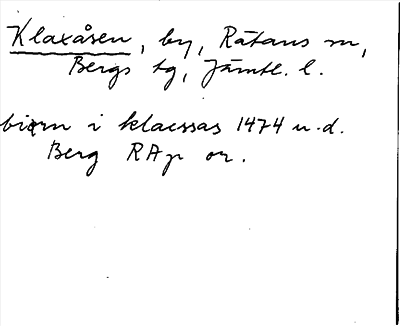 Klaxåsen, by, Rätans sn,
Bergs tg, Jämtl. l.
biørn i klaessas 1474 u.d.
Berg RAp or.